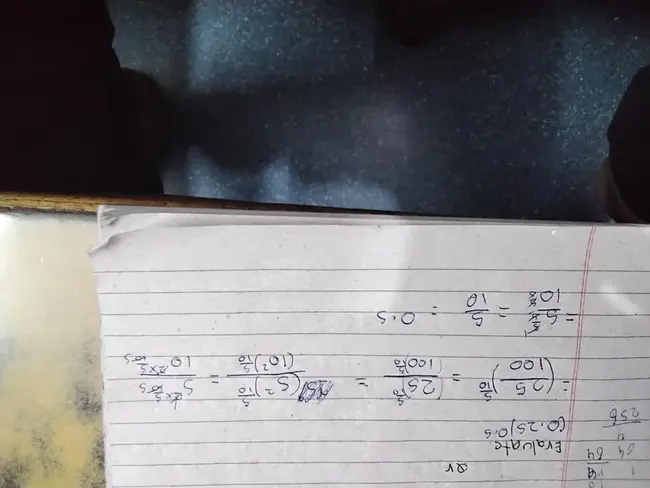 Qr
Evaluate
(0.25)0.5
= (25/100)^5/10 = (25)^5/10/(100)^5/10 = (5²)^5/10/(10²)^5/10 = 5^2×5/10/10^2×5/10
= 5/10 = 5/10 = 0.5
64
64
4
256